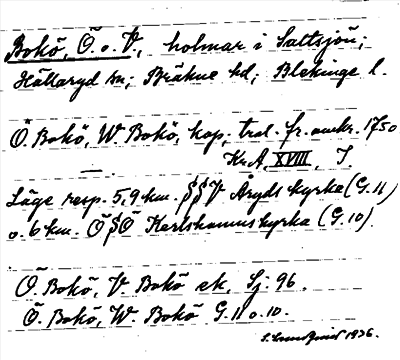 Bokö, Ö. o. V., holmar i Saltsjön;
Hällaryd sn; Bräkne hd; Blekinge l.
Ö. Bokö, W. Bokö, kop. tral. fr. omkr. 1750
Kr.A. XVIII, I.
Läge resp. 5,9 km. S§V Åryds kyrka (G. 11)
o. 6 km. Ö§Ö Karlshamns kyrka (G. 10).
Ö. Bokö, V. Bokö ek, Sj. 96.
Ö. Bokö, W. Bokö G. 11 o. 10.
1936.